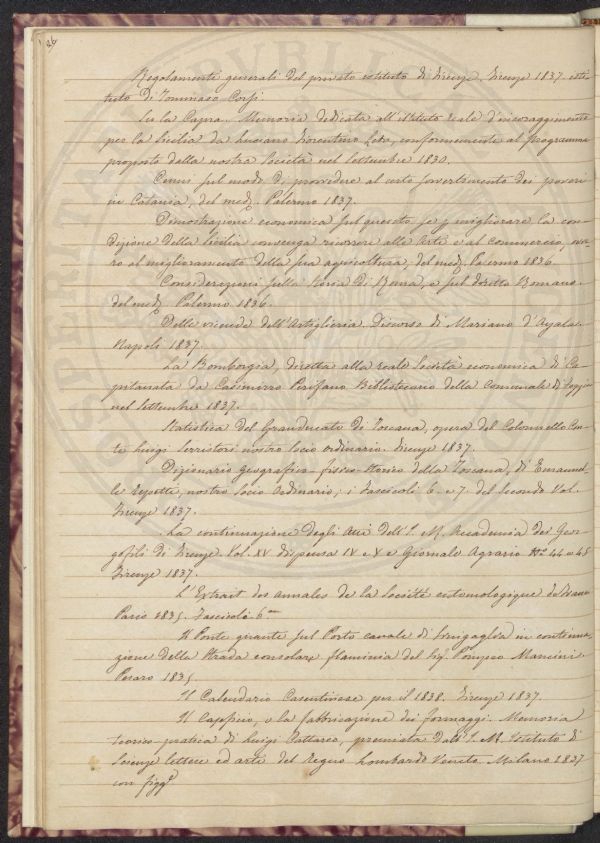 Regolamenti generali del privato istituto di Firenze. Firenze 1837. isti
tuto di Tommaso Corsi.
Su la Capra. Memoria dedicata all'istituto reale d'incoraggimento
per la Sicilia da Luciano Fiorentino, conformemente al programma
proposto dalla nostra Società nel Settembre 1830.
Cenni sul modo di provvedere al certo sovvertimento dei poveri
in Catania, del med. Palermo 1837.
Dimostrazione economica sul quesito se p migliorare la con
dizione della Sicilia convenga ricorrere alle arti e al commercio, ov
ro al miglioramento della sua agricoltura, del med. Palermo 1836
Considerazioni sulla Storia di Roma, e sul diritto Romano
del med. Palermo 1836.
Delle vicende dell'Artiglieria. Discorso di Mariano d'Ayala.
Napoli 1837.
La Bomborgia, diretta alla reale Società economica di Ca
pitanata da Casimirro Perifano Bibliotecario della Comunale di Foggia
nel Settembre 1837.
Statistica del Granducato di Toscana, opera del Colonnello Con
te Luigi Serristori nostro socio ordinario. Firenze 1837.
Dizionario geografico-fisico-storico della Toscana, di Emanuel
le Repetti, nostro socio Ordinario, i Fascicoli 6. e 7. del Secondo Vol.
Firenze 1837.
La continuazione degli Atti dell'I. R. Accademia dei Geor
gofili di Firenze Vol. XV dispensa IV e V e Giornale Agrario No. 44 e 45
Firenze 1837.
L'Extrait des annales de la Société entomologique de France
Paris 1835. Fascicolo 6
Il Ponte girante sul Porto canale di Sinigaglia in continua
zione della Strada consolare flaminia del Sig. Pompeo Mancini.
Pesaro 1835.
Il Calendario Casentinese per il 1838. Firenze 1837.
Il Caseficio, o la fabbricazione dei formaggi. Memoria
teorico-pratica di Luigi Cattaneo, premiata dall'I. R. Istituto di
Scienze lettere ed arti del regno Lombardo Veneto. Milano 1837
con figg.